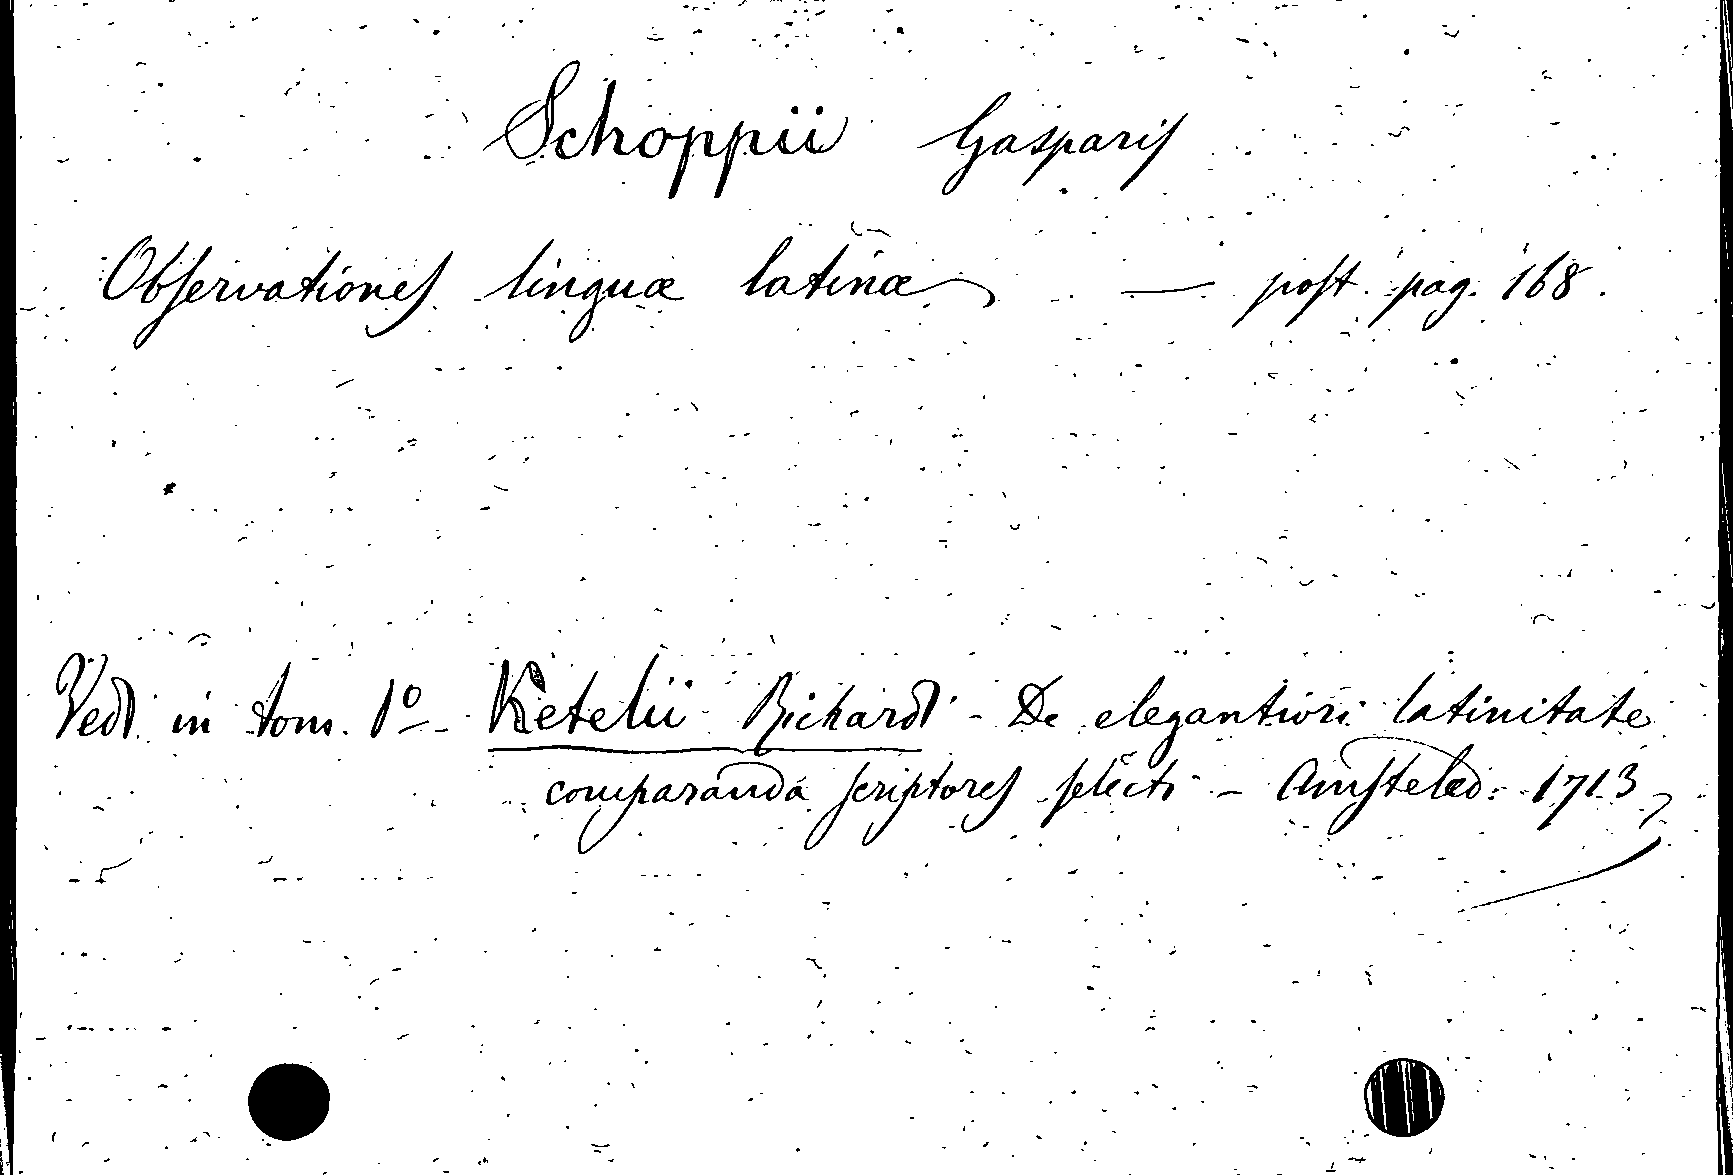 Schoppii Gasparis
Observationes linguæ latinæ — post pag. 168.
Ved. in tom. 1º - Ketelii Richardi - De elegantiori latinitate
comparanda scriptores selecti - Amsteled: 1713